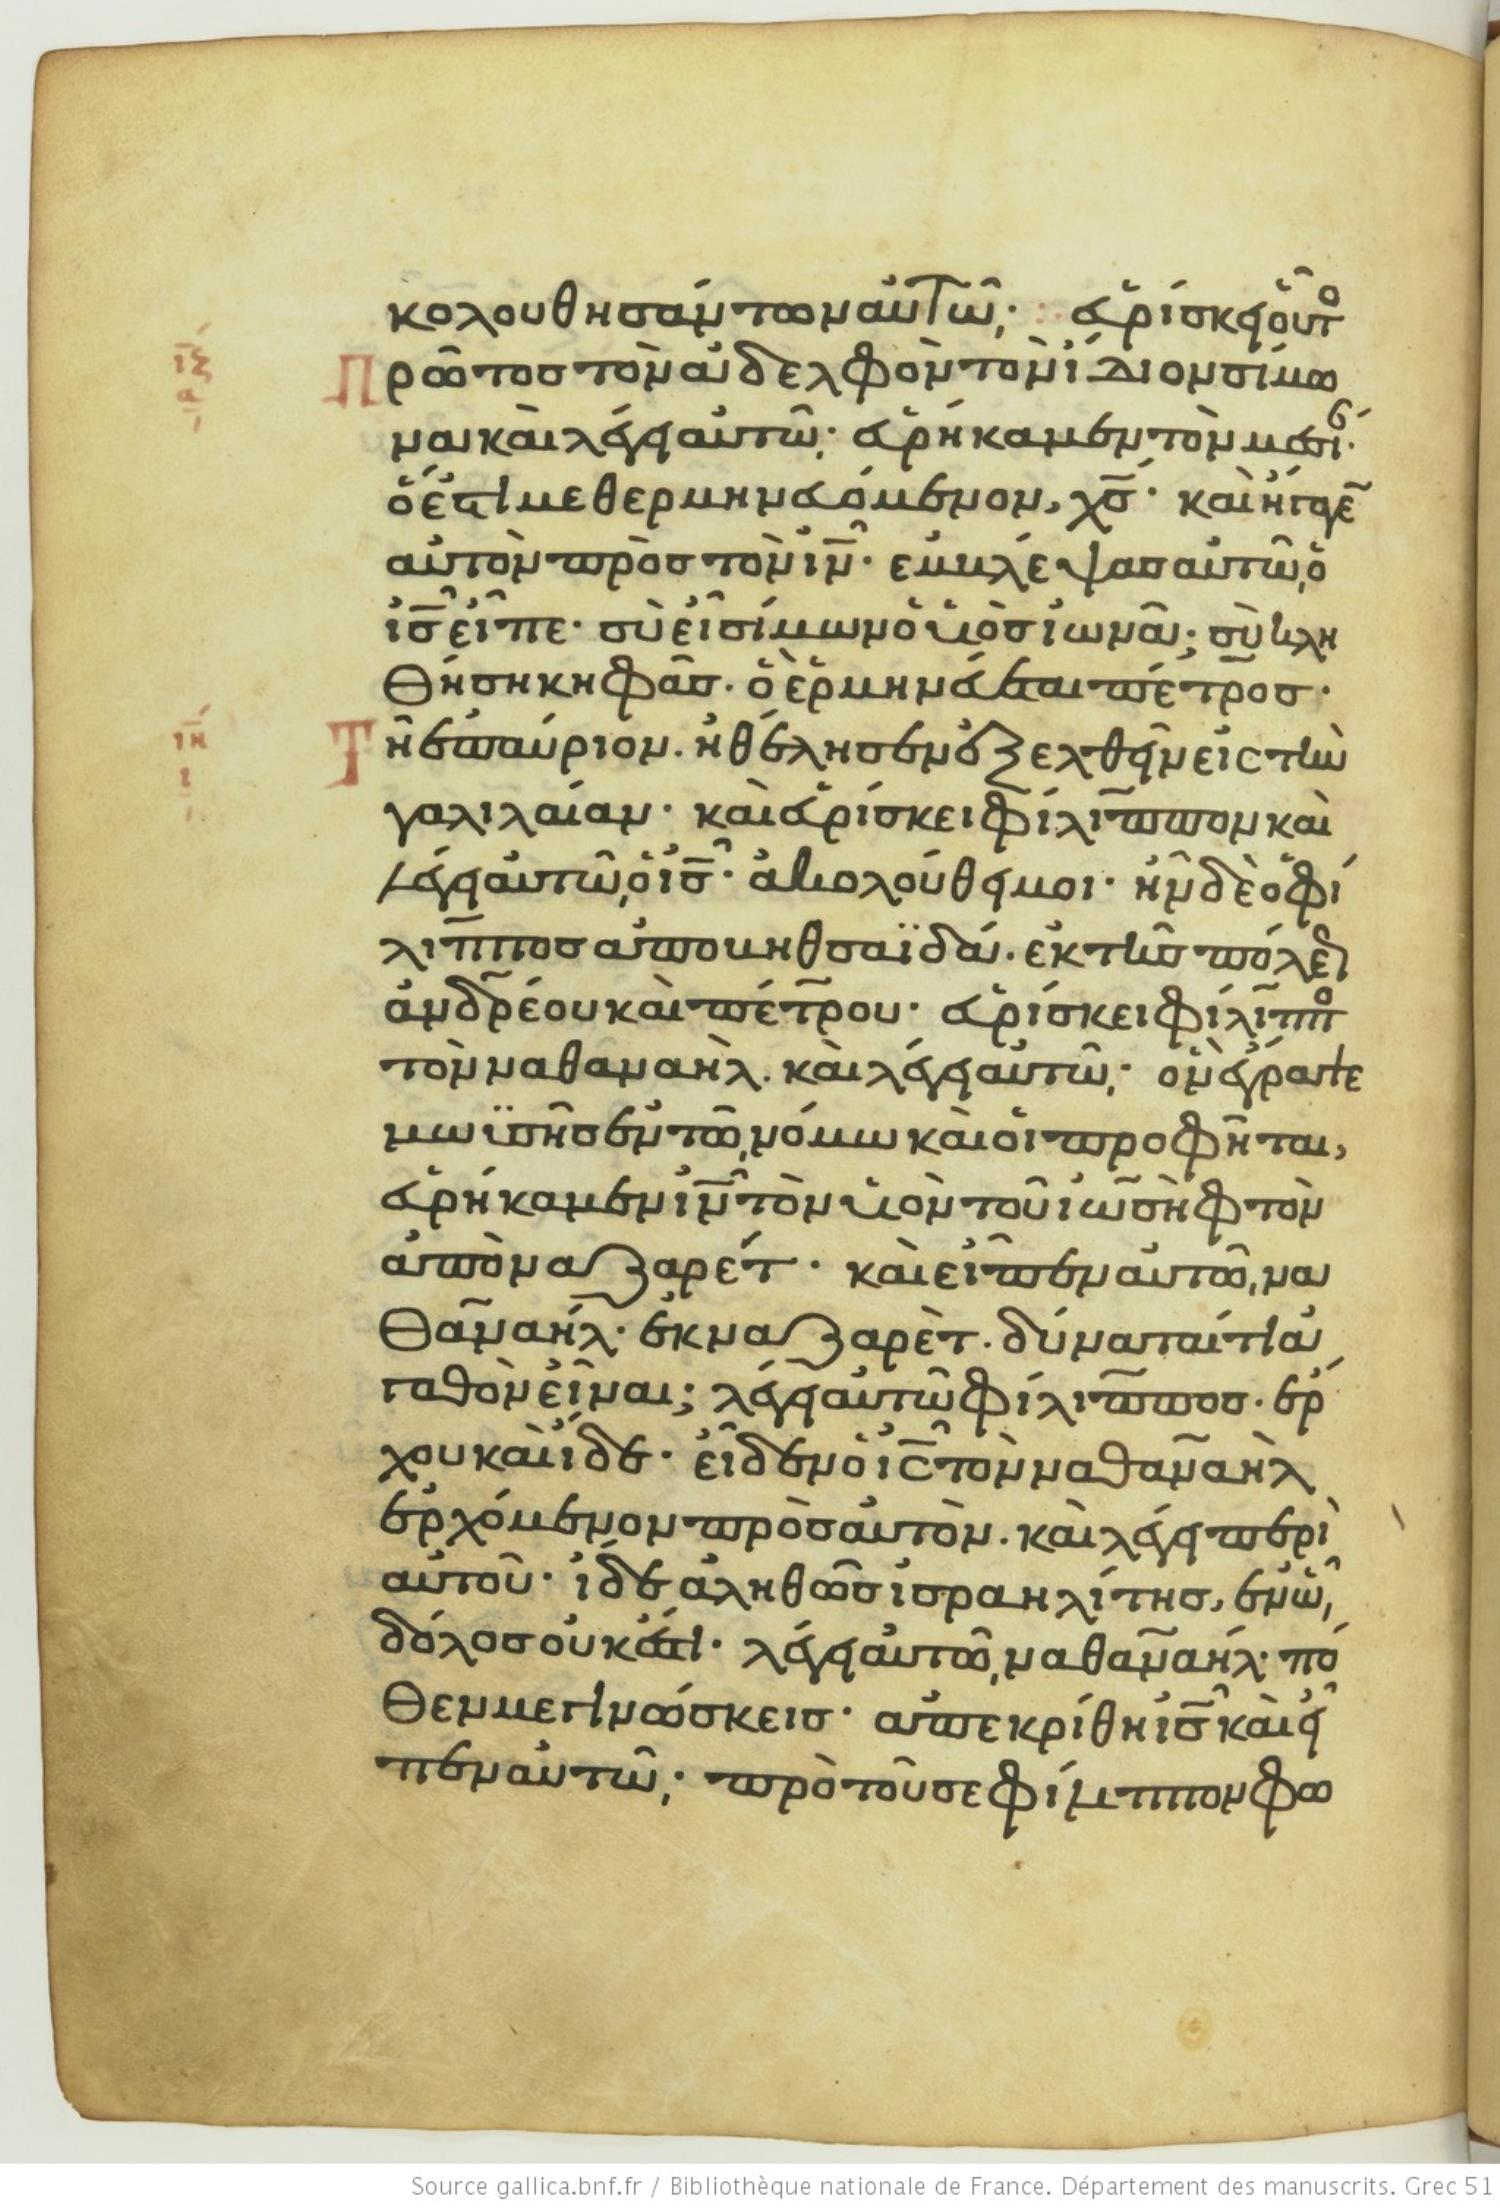 κολουθησάντων αὐτῶ· εὑρίσκει οὗτος
ιζ
α
Πρῶτος τὸν ἀδελφὸν τὸν ἴδιον σίμω
να καὶ λέγει αὐτῶ· εὑρήκαμεν τὸν μεσίαν·
ὅ ἐστι μεθερμηνευόμενον, χς̅· καὶ ἤγαγεν
αὐτὸν πρὸς τὸν ιν̅· ἐμβλέψας αὐτῶ ὁ
ις̅ εἶπε· σὺ εἶ σίμων ὁ υἱὸς ἰωνᾶ; σὺ κλη
θήση κηφᾶς. ὃ ἑρμηνεύεται πέτρος·
ιη
ι
Τῆ ἐπαύριον. ἠθέλησεν ἐξελθεῖν εἰς τὴν
γαλιλαίαν· καὶ εὑρίσκει φίλιππον καὶ
λέγει αὐτῶ ὁ ις̅· ἀκολούθει μοι· ἦν δὲ ὁ φί
λιππος ἀπὸ βηθσαϊδά. ἐκ τῆς πόλεως
ἀνδρέου καὶ πέτρου· εὑρίσκει φίλιππος
τὸν ναθαναὴλ. καὶ λέγει αὐτῶ· ὃν ἔγραψε
μωϊσῆς ἐν τῶ νόμω καὶ οἱ προφῆται,
εὑρήκαμεν ιν̅ τὸν υἱὸν τοῦ ἰωσὴφ τὸν
ἀπὸ ναζαρέτ· καὶ εἶπεν αὐτῶ να
θαναήλ· ἐκ ναζαρὲτ. δύναταί τι ἀ
γαθὸν εἶναι; λέγει αὐτῶ φίλιππος. ἔρ
χου καὶ ἴδε· εἶδεν ὁ ις̅ τὸν ναθαναὴλ
ἐρχόμενον πρὸς αὐτὸν. καὶ λέγει περὶ
αὐτοῦ· ἴδε ἀληθῶς ἰσραηλίτης, ἐν ὧ
δόλος οὐκ ἔστι· λέγει αὐτῶ ναθαναήλ· πό
θεν με γινώσκεις· ἀπεκρίθη ις̅ καὶ εἶ
πεν αὐτῶ· πρὸ τοῦ σε φίλιππον φω
Source gallica.bnf.fr / Bibliothèque nationale de France. Département des manuscrits. Grec 51